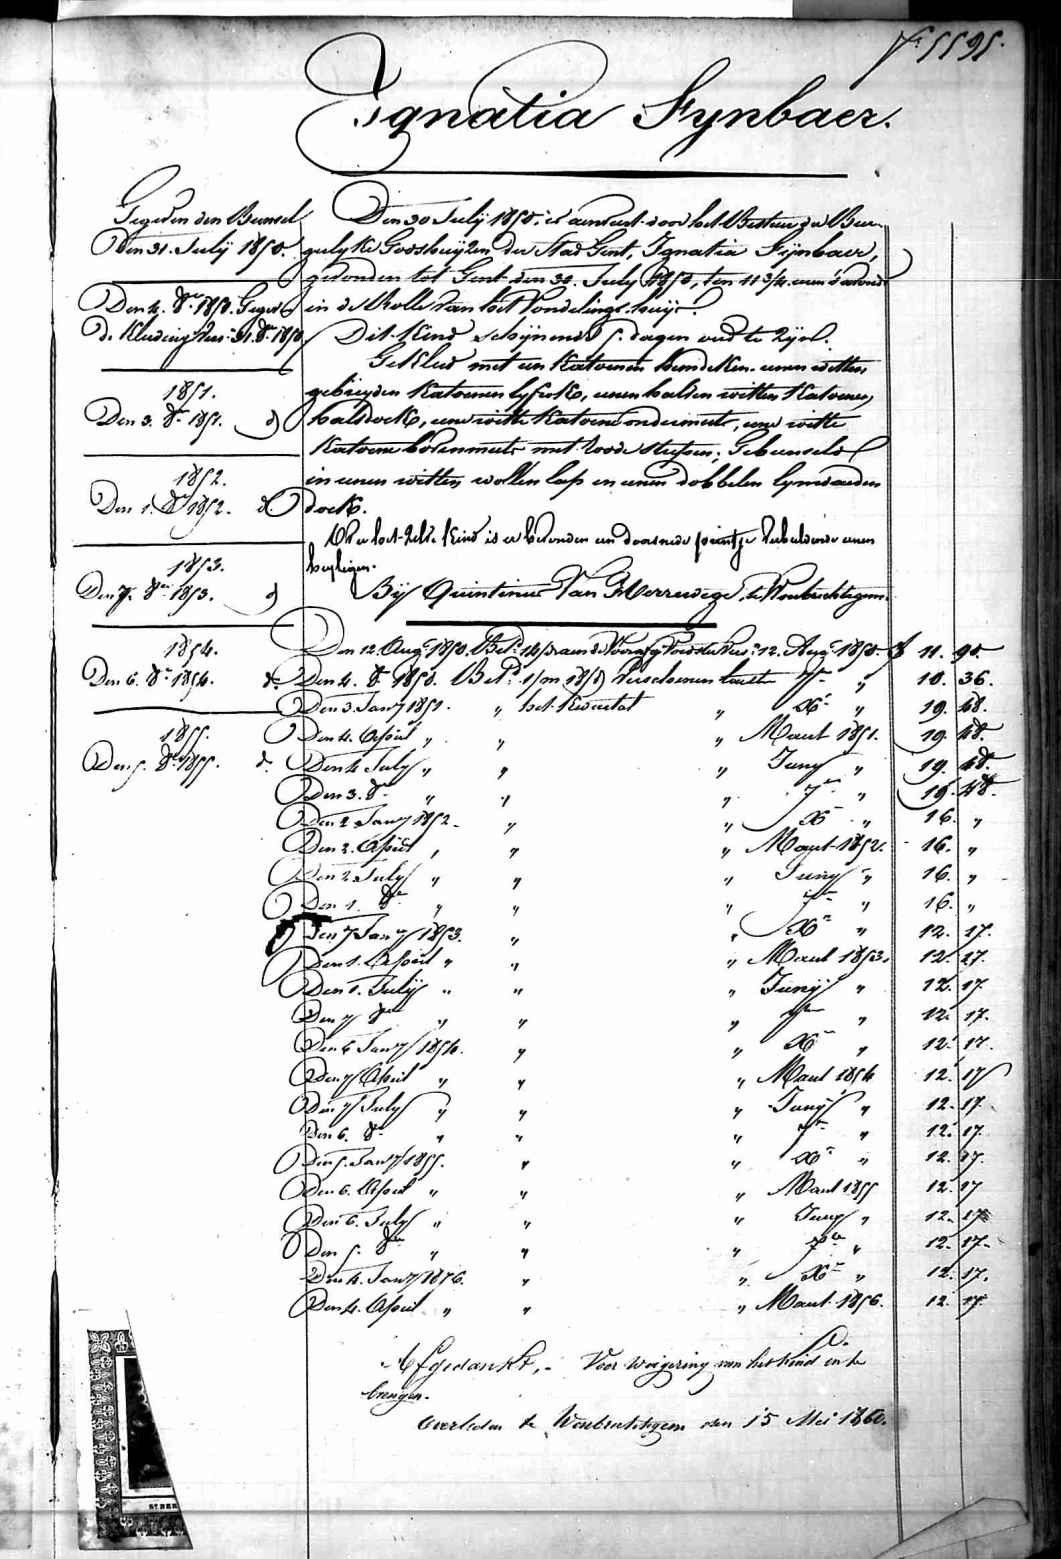 N° 5595.
Ignatia Fynbaer.
Gegeven den Bunsel
Den 31. July 1850.
Den 4. 8br 1850. Gegev
de Kleeding
1851.
Den 3. 8br 1851. d
1852.
Den 1. 8br 1852. d
1853.
Den 7. 8br 1853. d
1854.
Den 6. 8br 1854. d.
1855.
Den 5. 8br 1855. d.
Den 30 July 1850. is aenveert door het Bestuer der Bur-
gelyke Godshuyzen der Stad Gent, Ignatia Fijnbaer,
gevonden tot Gent den 30. July 1850, ten 11 3/4 uren 's avonds
in de Rolle van het Vondelinghuys.
Dit Kind schijnende 5. dagen oud te zyn.
Gekleed met een Katoenen hemdeken, eenen witten
gebreyden Katoenen lyfrok, eenen halven witten Katoenen
halsdoek, eene witte Katoene ondermuts, eene witte
Katoene bovenmuts met roode strepen; Gebunseld
in eenen witten wollen lap en eenen dobbelen lynwaeden
doek.
Op het zelve Kind is er bevonden een doorsnede printje verbeeldende eenen
heyligen.
Bij Quintinus Van Merrewege, te Woubrechtegem.
Den 12 Augt 1850. Bet. 12 Augt 1850. f 11. 90.
Den 4. 8br 1850. Bet. Verschenen 7br „ 10. 36.
Den 3. Janry 1851. „ het Kwartal „ Xbr „ 19. 48.
Den 4. April „ „ „ Maart 1851. 19. 48.
Den 4 July „ „ „ Juny „ 19. 48.
Den 3. 8br „ „ „ 7br „ 19. 48.
Den 2 Janry 1852. „ „ Xbr „ 16. „
Den 2. April „ „ „ Maart 1852. 16. „
Den 2 July „ „ „ Juny „ 16. „
Den 1. 8br „ „ „ 7br „ 16. „
Den 7 Janry 1853. „ „ Xbr „ 12. 17.
Den 1. April „ „ „ Maart 1853. 12. 17.
Den 1. July „ „ „ Juny „ 12. 17.
Den 7 8br „ „ „ 7br „ 12. 17.
Den 6 Janry 1854. „ „ Xbr „ 12. 17.
Den 7 April „ „ „ Maart 1854 12. 17
Den 7 July „ „ „ Juny „ 12. 17.
Den 6. 8br „ „ „ 7br „ 12. 17.
Den 5. Janry 1855. „ „ Xbr „ 12. 17.
Den 6. April „ „ „ Maart 1855 12. 17
Den 6. July „ „ „ Juny „ 12. 17
Den 5. 8br „ „ „ 7br „ 12. 17.
Den 4. Janry 1876. „ „ Xbr „ 12. 17.
Den 4. April „ „ „ Maart 1856. 12. 17.
Afgedankt, - Voor weigering van het kind in te
brengen.
Overleden te Woubrechtegem den 15 Mei 1860.
ST. BER